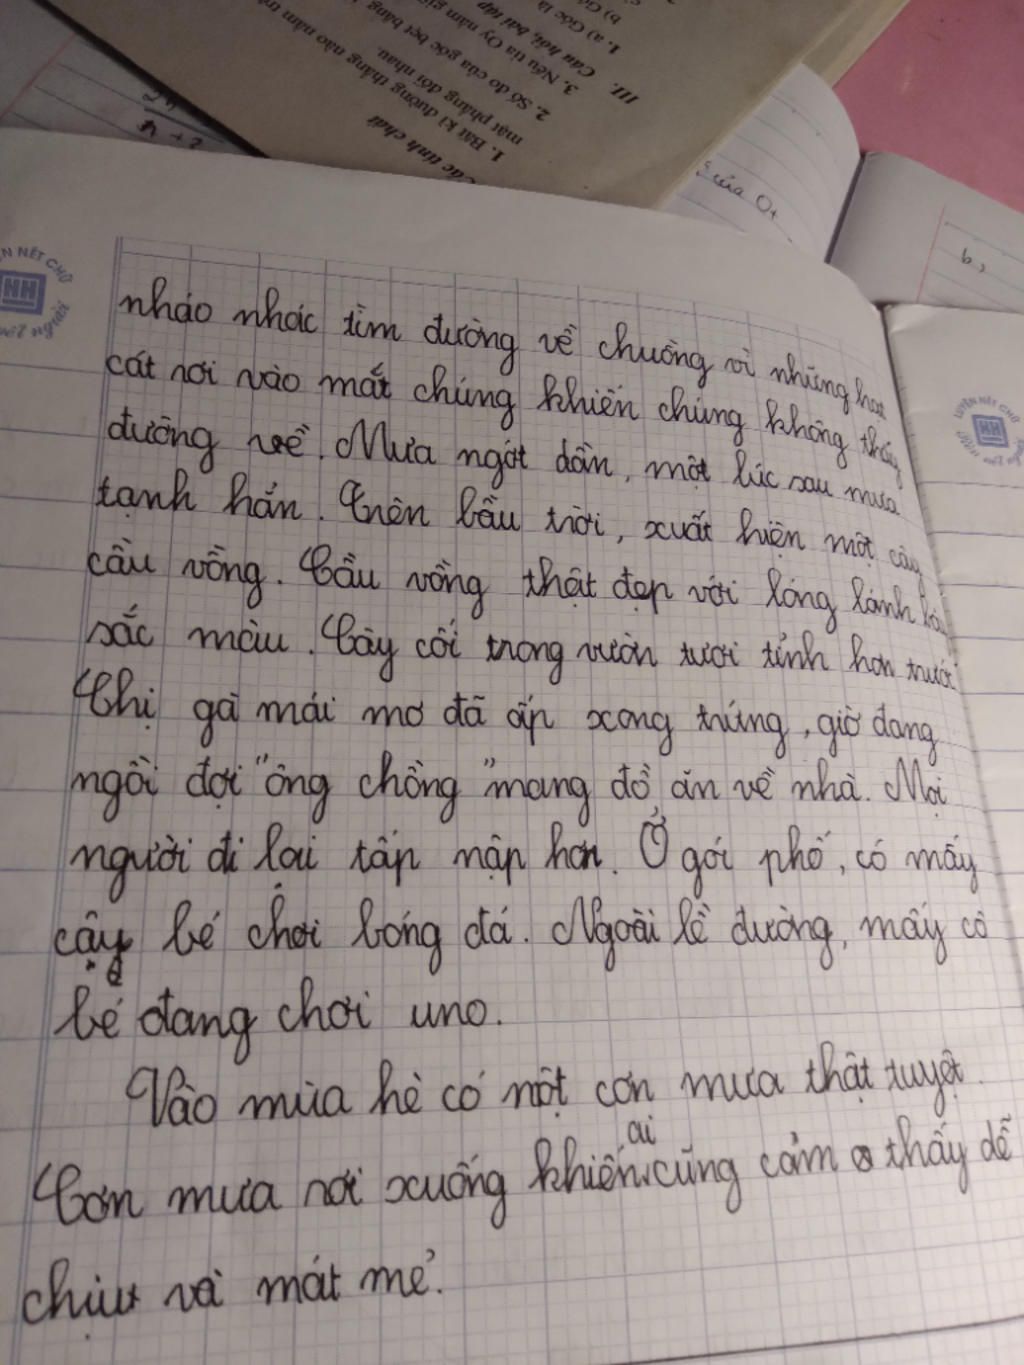 Các tính chất
1. Bất kì đường thẳng nào nằm trên
mặt phẳng đối nhau.
2. Số đo của góc bẹt bằng
3. Nếu tia Oy nằm
III. Câu hỏi, bài tập
1. a) Góc là
b)
của Ot
b,
NÉT CHỮ
HH
nết người
LUYỆN NÉT CHỮ
HH
nháo nhác tìm đường về chuồng vì những hạt
cát rơi vào mắt chúng khiến chúng không thấy
đường về. Mưa ngớt dần, một lúc sau mưa
tạnh hẳn. Trên bầu trời, xuất hiện một cây
cầu vồng. Cầu vồng thật đẹp với lóng lánh bảy
sắc màu. Cây cối trong vườn tươi tỉnh hơn trước
Chị gà mái mơ đã ấp xong trứng, giờ đang
ngồi đợi "ông chồng" mang đồ ăn về nhà. Mọi
người đi lại tấp nập hơn. Ở gói phố, có mấy
cậy bé chơi bóng đá. Ngoài lề đường, mấy cô
bé đang chơi uno.
Vào mùa hè có một cơn mưa thật tuyệt.
Cơn mưa rơi xuống khiến ai cũng cảm thấy dễ
chịu và mát mẻ.